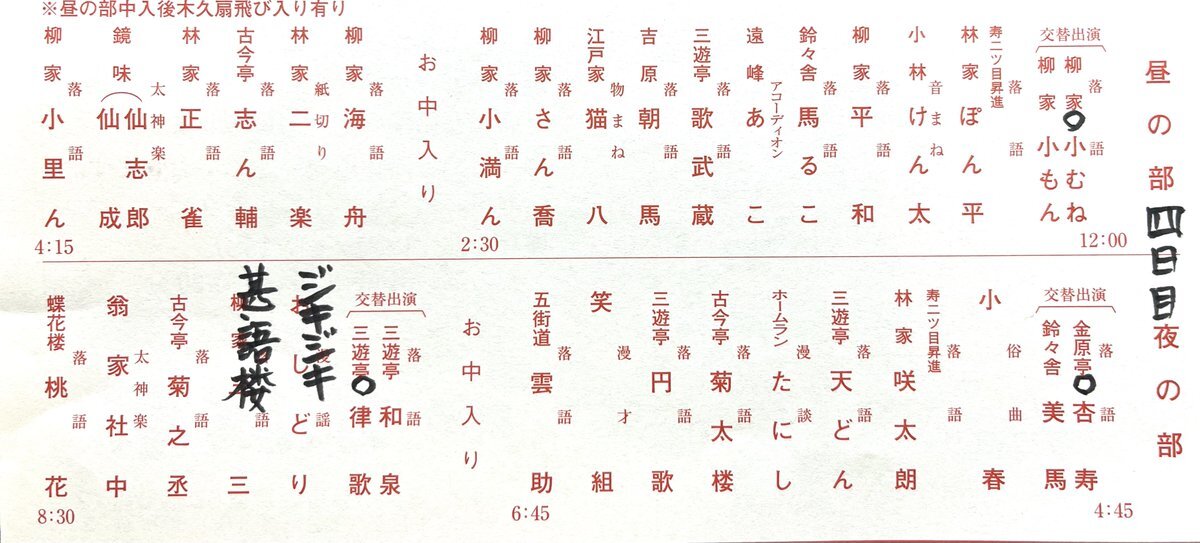 ※昼の部中入後木久扇飛び入り有り
昼の部
四日目
夜の部
交替出演
落語
柳家○小むね
柳家小もん
12:00
寿二ツ目昇進
落語
林家ぽん平
音まね
小林けん太
落語
柳家平和
落語
鈴々舎馬るこ
アコーディオン
遠峰あこ
落語
三遊亭歌武蔵
落語
吉原朝馬
物まね
江戸家猫八
落語
柳家さん喬
落語
柳家小満ん
2:30
お中入り
落語
柳家海舟
紙切り
林家二楽
落語
古今亭志ん輔
落語
林家正雀
太神楽
鏡味仙志郎
仙成
落語
柳家小里ん
4:15
交替出演
落語
金原亭○杏寿
鈴々舎美馬
4:45
俗曲
小春
寿二ツ目昇進
落語
林家咲太朗
落語
三遊亭天どん
漫談
ホームランたにし
落語
古今亭菊太楼
落語
三遊亭円歌
漫才
笑組
落語
五街道雲助
6:45
お中入り
交替出演
落語
三遊亭和泉
三遊亭○律歌
おしどり
ジキジキ
柳家三
甚語楼
落語
古今亭菊之丞
太神楽
翁家社中
落語
蝶花楼桃花
8:30